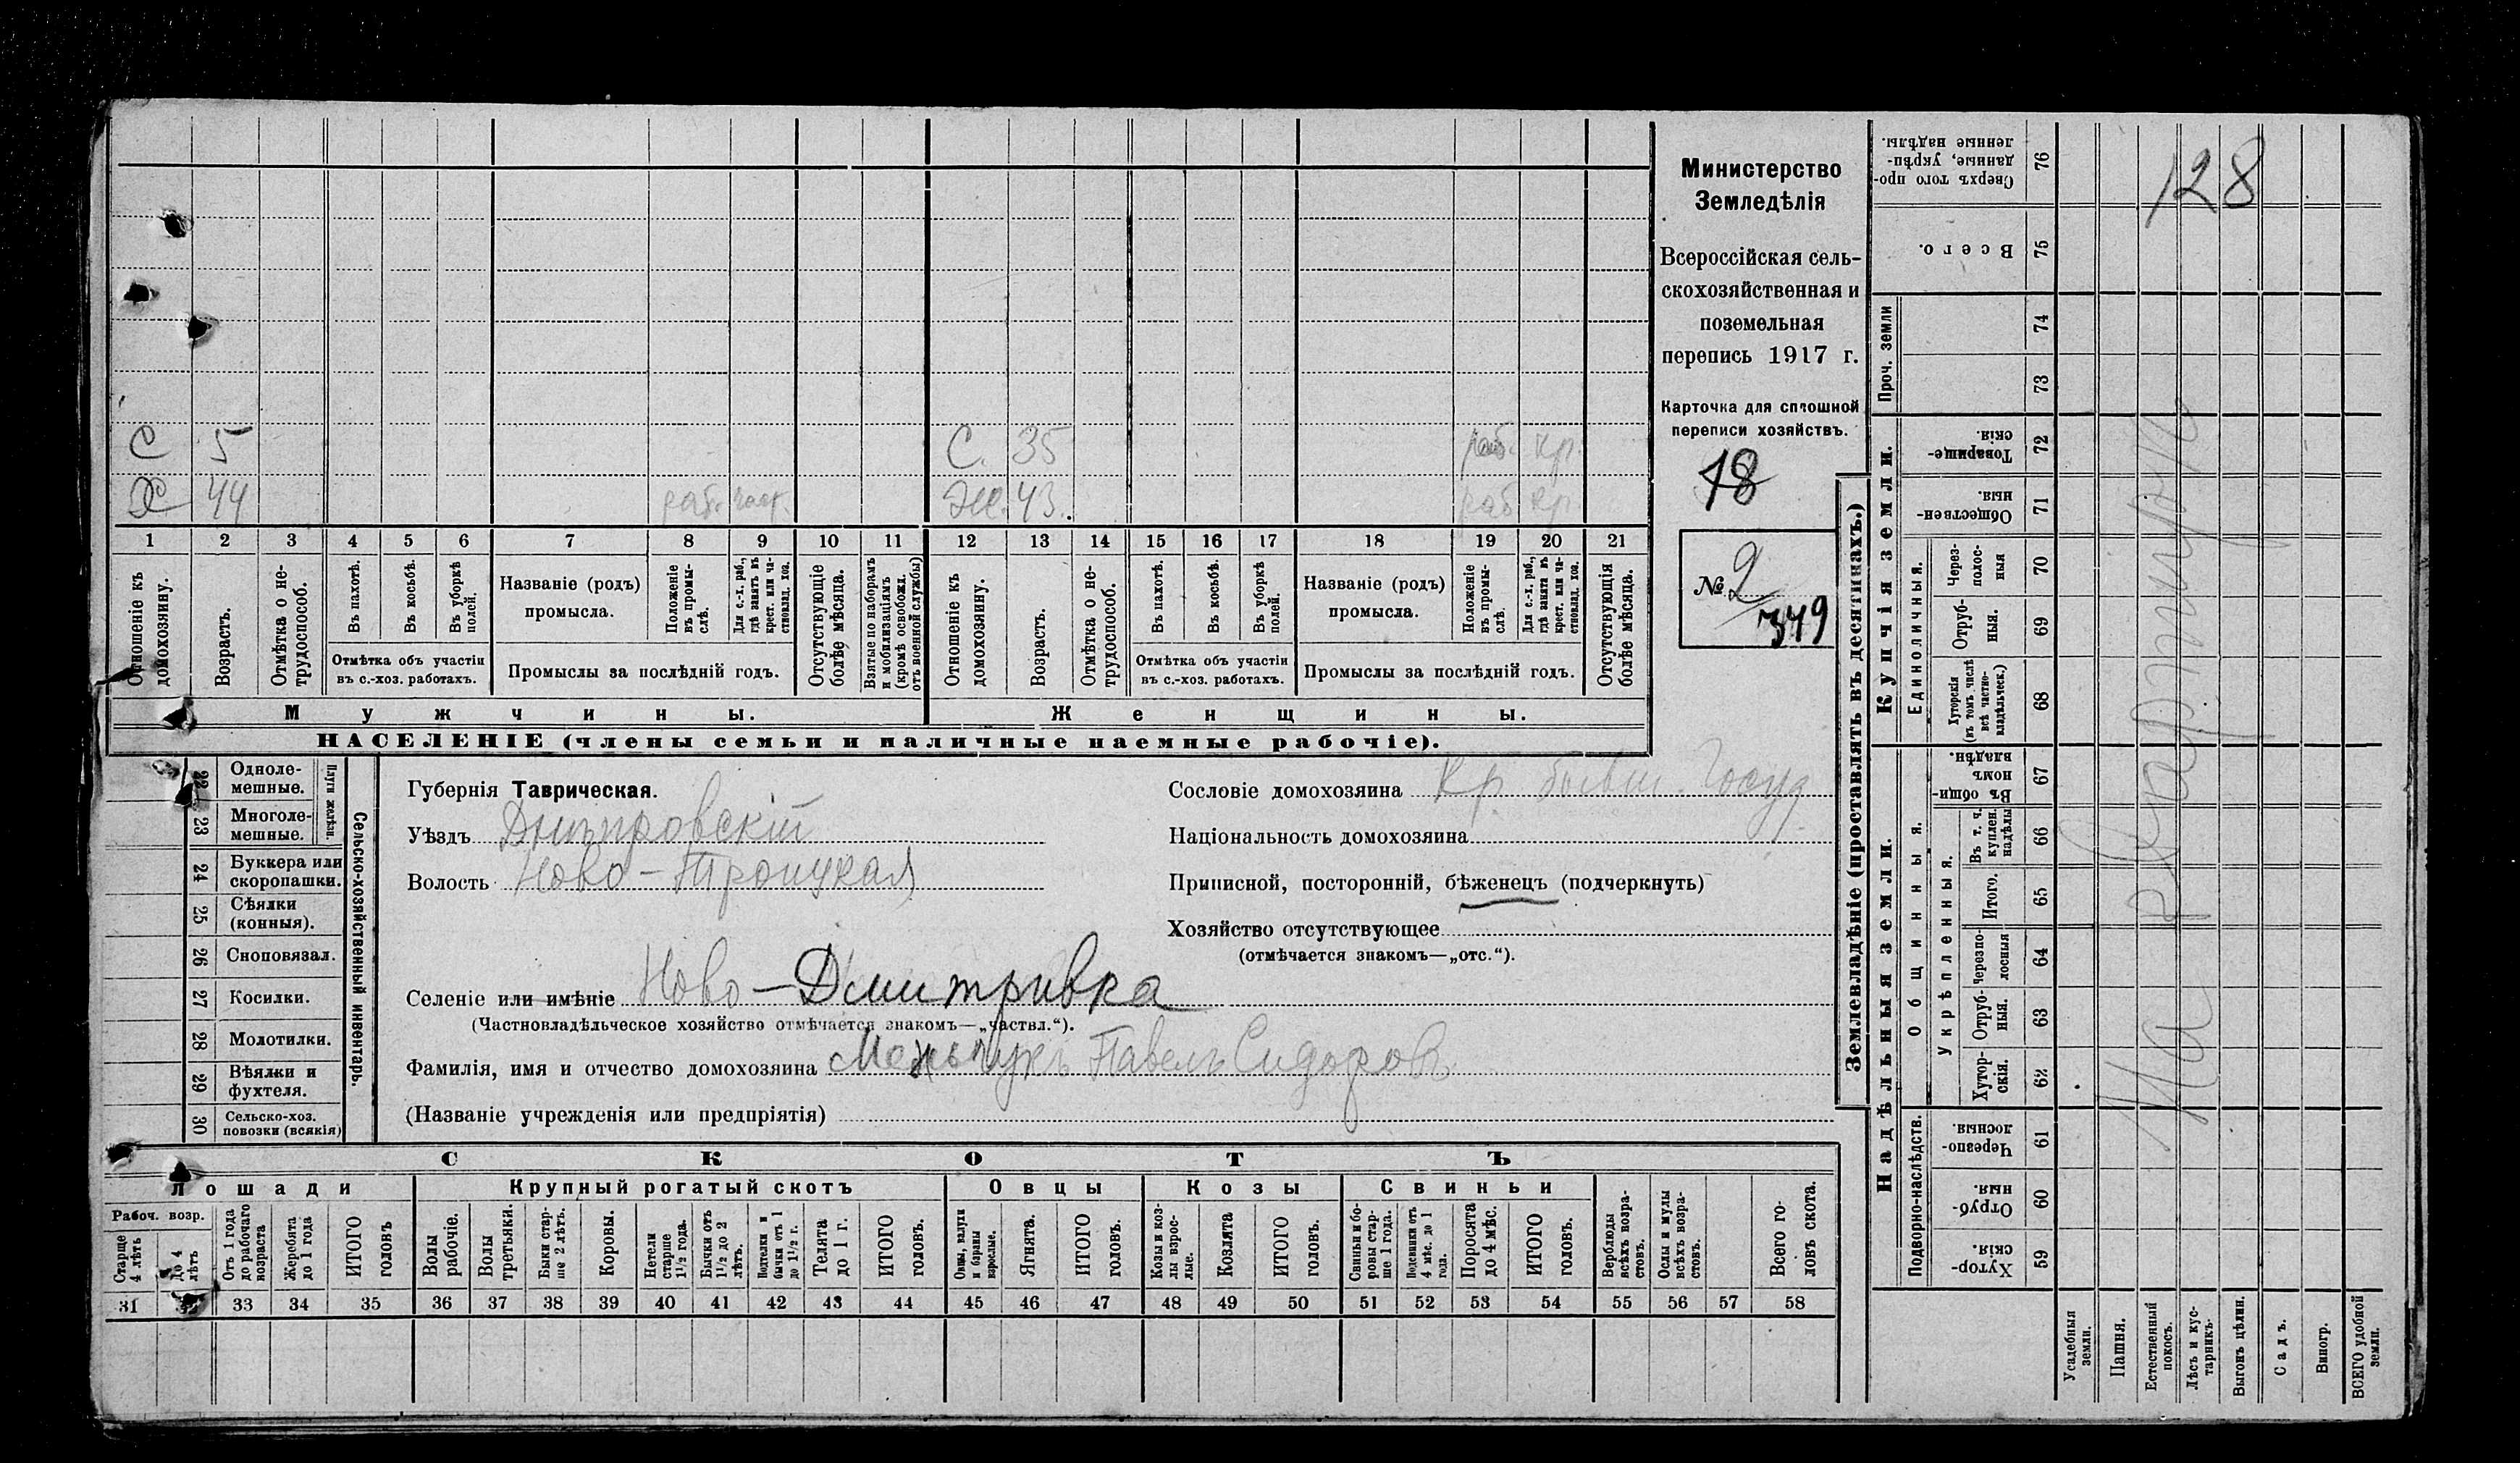 С 5 С. 35 раб. кр.
Х 44 раб. Ж. 43. раб кр.
1 2 3 4 5 6 7 8 9 10 11 12 13 14 15 16 17 18 19 20 21
Отношеніе къ домохозяину.
Возрастъ.
Отмѣтка о не-
трудоспособ.
Въ пахотѣ.
Въ косьбѣ.
Въ уборкѣ полей.
Отмѣтка объ участіи
въ с.-хоз. работахъ.
Названіе (родъ)
промысла.
Положеніе
въ промы-
слѣ.
Для с.-х. раб.,
гдѣ занятъ въ
крест. или ча-
стновлад. хоз.
Промыслы за послѣдній годъ.
Отсутствующіе
болѣе мѣсяца.
Взятые по наборамъ
и мобилизаціямъ
(кромѣ освобожд.
отъ военной службы)
Отношеніе къ
домохозяину.
Возрастъ.
Отмѣтка о не-
трудоспособ.
Въ пахотѣ.
Въ косьбѣ.
Въ уборкѣ
полей.
Отмѣтка объ участіи
въ с.-хоз. работахъ.
Названіе (родъ)
промысла.
Положеніе
въ промы-
слѣ.
Для с.-х. раб.,
гдѣ занята въ
крест. или ча-
стновлад. хоз.
Промыслы за послѣдній годъ.
Отсутствующія
болѣе мѣсяца.
Мужчины.
Женщины.
НАСЕЛЕНІЕ (члены семьи и наличные наемные рабочіе).
Министерство
Земледѣлія
Всероссійская сель-
скохозяйственная и
поземельная
перепись 1917 г.
Карточка для сплошной
переписи хозяйствъ.
18
№ 2
349
22 Одноле-
мешные.
23 Многоле-
мешные.
Плуги желѣзн.
24 Буккера или
скоропашки.
25 Сѣялки
(конныя).
26 Сноповязал.
27 Косилки.
28 Молотилки.
29 Вѣялки и
фухтеля.
30 Сельско-хоз.
повозки (всякія)
Сельско-хозяйственный инвентарь.
Губернія Таврическая.
Уѣздъ Днѣпровскій
Волость Ново-Троицкая
Селеніе или имѣніе Ново-Дмитривка
(Частновладѣльческое хозяйство отмѣчается знакомъ—„частвл.“).
Фамилія, имя и отчество домохозяина Павелъ Сидоровъ
(Названіе учрежденія или предпріятія)
Сословіе домохозяина Кр. бывш. Госуд.
Національность домохозяина
Приписной, посторонній, бѣженецъ (подчеркнуть)
Хозяйство отсутствующее
(отмѣчается знакомъ—„отс.“).
СКОТЪ
Лошади
Рабоч. возр.
Старше
4 лѣтъ
До 4
лѣтъ
Отъ 1 года
до рабочаго
возраста
Жеребята
до 1 года
ИТОГО
головъ
Крупный рогатый скотъ
Волы
рабочіе.
Волы
третьяки.
Быки стар-
ше 2 лѣтъ.
Коровы.
Нетели
старше
1½ года.
Бычки отъ
1½ до 2
лѣтъ.
Подтелки и
бычки отъ 1
до 1½ г.
Телята
до 1 г.
ИТОГО
головъ.
Овцы
Овцы, валухи
и бараны
взрослые.
Ягнята.
ИТОГО
головъ.
Козы
Козы и коз-
лы взрос-
лые.
Козлята
ИТОГО
головъ.
Свиньи
Свиньи и бо-
ровы стар-
ше 1 года.
Подсвинки отъ
4 мѣс. до 1
года.
Поросята
до 4 мѣс.
ИТОГО
головъ.
Верблюды
всѣхъ возра-
стовъ.
Ослы и мулы
всѣхъ возра-
стовъ.
Всего го-
ловъ скота.
31 32 33 34 35 36 37 38 39 40 41 42 43 44 45 46 47 48 49 50 51 52 53 54 55 56 57 58
Землевладѣніе (проставлять въ десятинахъ.)
Сверхъ того про-
данные, укрѣп-
ленные надѣлы. 76
128
Всего. 75
Проч. земли
74
73
Купчія земли.
Товарище-
скія. 72
Обществен-
ныя. 71
Единоличныя.
Через-
полос-
ныя 70
Отруб-
ныя. 69
Хуторскія
(въ томъ числѣ
всѣ частно-
владѣльческ.) 68
Надѣльныя земли.
Общинныя.
Въ общи-
номъ
владѣн. 67
Укрѣпленныя.
Въ т. ч.
куплен.
надѣлы 66
Итого. 65
Черезпо-
лосныя 64
Отруб-
ныя. 63
Хутор-
скія. 62
Подворно-наслѣдств.
Черезпо-
лосныя. 61
Отруб-
ныя. 60
Хутор-
скія. 59
На
Усадебныя
земли.
Пашня.
Естественный
покосъ.
Лѣсъ и кус-
тарникъ
Выгонъ цѣлин.
Садъ.
Виногр.
ВСЕГО удобной
земли.